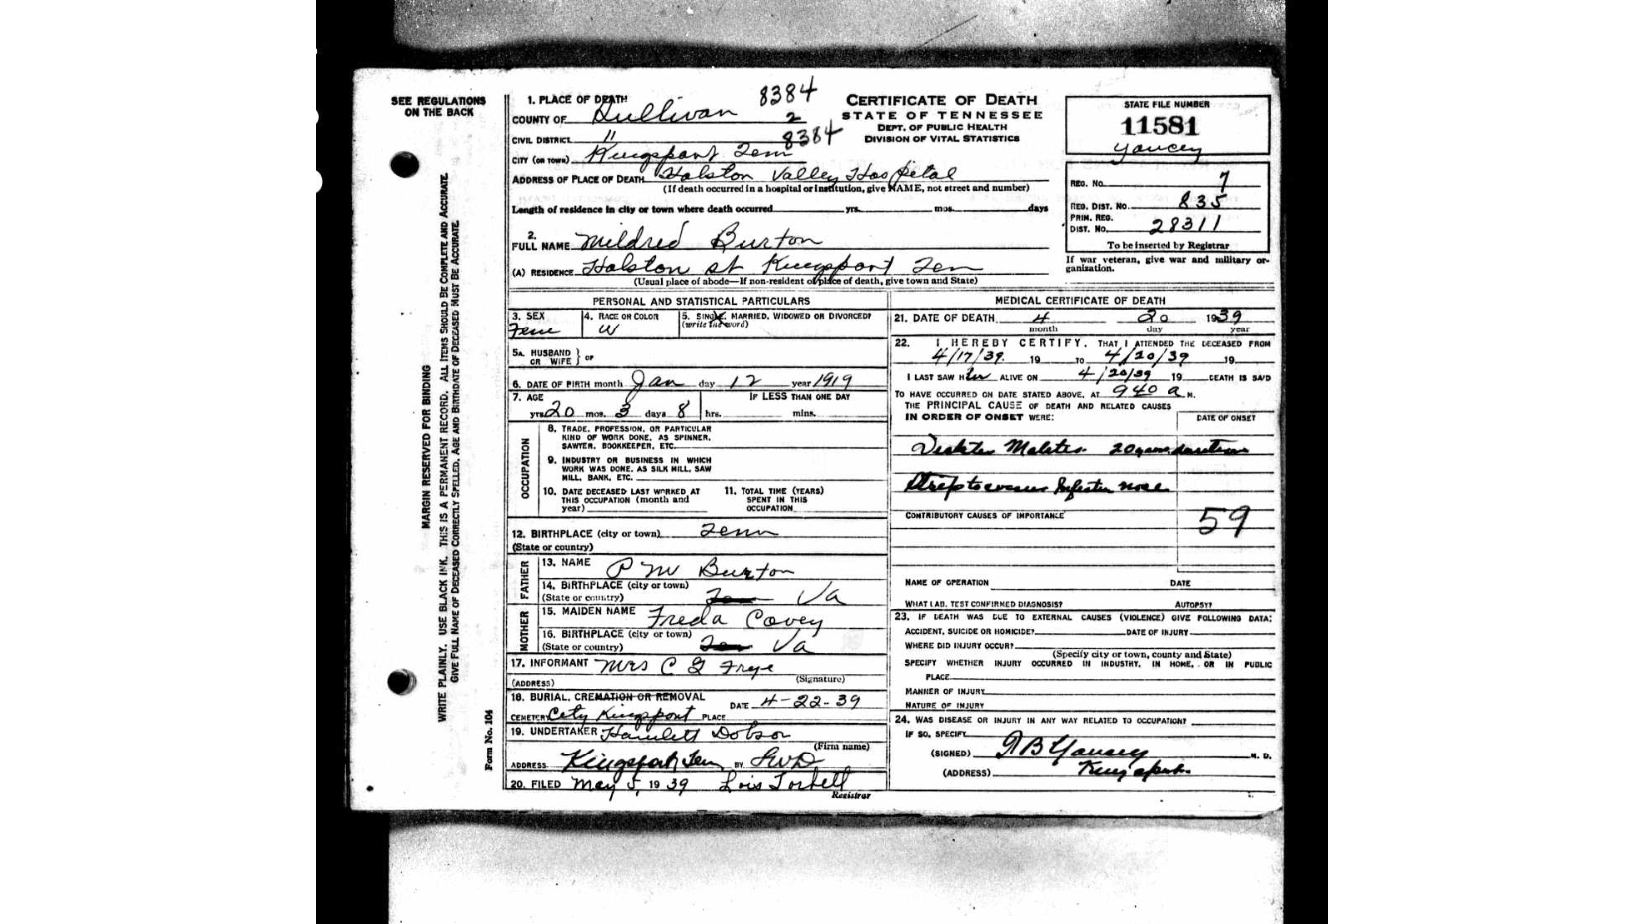 SEE REGULATIONS
ON THE BACK
MARGIN RESERVED FOR BINDING
WRITE PLAINLY. USE BLACK INK. THIS IS A PERMANENT RECORD. ALL ITEMS SHOULD BE COMPLETE AND ACCURATE.
GIVE FULL NAME OF DECEASED CORRECTLY SPELLED. AGE AND BIRTHDATE OF DECEASED MUST BE ACCURATE.
Form No. 104
1. PLACE OF DEATH 8384
COUNTY OF Sullivan 2
CIVIL DISTRICT 11 8384
CITY (OR TOWN) Kingsport Tenn
ADDRESS OF PLACE OF DEATH Holston Valley Hospital
(If death occurred in a hospital or institution, give NAME, not street and number)
Length of residence in city or town where death occurred yrs. mos. days
CERTIFICATE OF DEATH
STATE OF TENNESSEE
DEPT. OF PUBLIC HEALTH
DIVISION OF VITAL STATISTICS
STATE FILE NUMBER
11581
Yancey
REG. No. 7
REG. DIST. NO. 835
PRIM. REG.
DIST. NO. 28311
To be inserted by Registrar
If war veteran, give war and military organization.
2.
FULL NAME Mildred Burton
(A) RESIDENCE Holston st Kingsport Ten
(Usual place of abode—If non-resident of place of death, give town and State)
PERSONAL AND STATISTICAL PARTICULARS
3. SEX Fem
4. RACE OR COLOR W
5. SINGLE, MARRIED, WIDOWED OR DIVORCED?
(write the word)
5A. HUSBAND
OR WIFE } OF
6. DATE OF BIRTH month Jan day 12 year 1919
7. AGE IF LESS THAN ONE DAY
yrs 20 mos. 3 days 8 hrs. mins.
OCCUPATION
8. TRADE, PROFESSION, OR PARTICULAR
KIND OF WORK DONE, AS SPINNER,
SAWYER, BOOKKEEPER, ETC.
9. INDUSTRY OR BUSINESS IN WHICH
WORK WAS DONE, AS SILK MILL, SAW
MILL, BANK, ETC.
10. DATE DECEASED LAST WORKED AT
THIS OCCUPATION (month and
year)
11. TOTAL TIME (YEARS)
SPENT IN THIS
OCCUPATION
12. BIRTHPLACE (city or town) Tenn
(State or country)
FATHER
13. NAME P M Burton
14. BIRTHPLACE (city or town)
(State or country) Va
MOTHER
15. MAIDEN NAME Freda Covey
16. BIRTHPLACE (city or town)
(State or country) Va
17. INFORMANT Mrs C G Frye
(ADDRESS) (Signature)
18. BURIAL, CREMATION OR REMOVAL
DATE 4-22-39
CEMETERY City Kingsport PLACE
19. UNDERTAKER Hamlett Dobson
(Firm name)
ADDRESS Kingsport, Ten BY
20. FILED May 5, 1939 Lois Torbett
Registrar
MEDICAL CERTIFICATE OF DEATH
21. DATE OF DEATH 4 20 1939
month day year
22. I HEREBY CERTIFY, THAT I ATTENDED THE DECEASED FROM
4/17/39 19 TO 4/20/39 19
I LAST SAW HER ALIVE ON 4/20/39 19 DEATH IS SAID
TO HAVE OCCURRED ON DATE STATED ABOVE, AT 940 a M.
THE PRINCIPAL CAUSE OF DEATH AND RELATED CAUSES
IN ORDER OF ONSET WERE: DATE OF ONSET
20 years duration
Streptococcus Infection nose
CONTRIBUTORY CAUSES OF IMPORTANCE
59
NAME OF OPERATION DATE
WHAT LAB. TEST CONFIRMED DIAGNOSIS? AUTOPSY?
23. IF DEATH WAS DUE TO EXTERNAL CAUSES (VIOLENCE) GIVE FOLLOWING DATA:
ACCIDENT, SUICIDE OR HOMICIDE? DATE OF INJURY
WHERE DID INJURY OCCUR?
(Specify city or town, county and State)
SPECIFY WHETHER INJURY OCCURRED IN INDUSTRY, IN HOME, OR IN PUBLIC
PLACE
MANNER OF INJURY
NATURE OF INJURY
24. WAS DISEASE OR INJURY IN ANY WAY RELATED TO OCCUPATION?
IF SO, SPECIFY
(SIGNED) Yancey M. D.
(ADDRESS) Kingsport